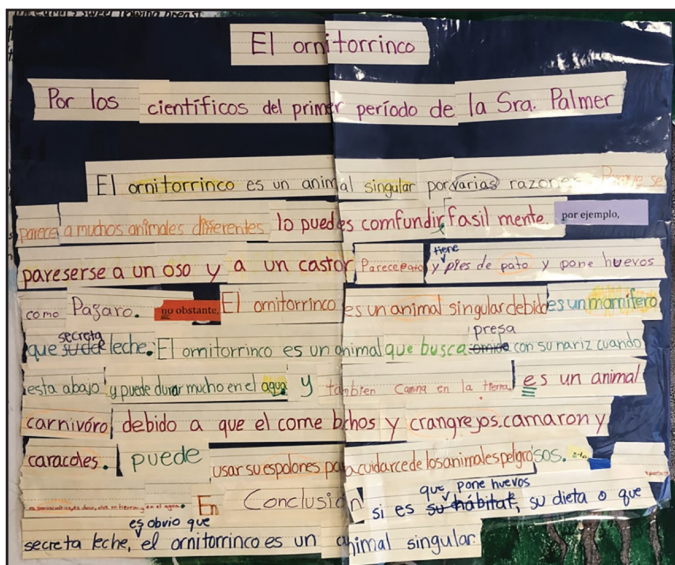 El ornitorrinco
Por los científicos del primer período de la Sra. Palmer
El ornitorrinco es un animal singular por varias razones. Porque se
parece a muchos animales differentes lo puedes comfundir fasil mente. por ejemplo,
pareserse a un oso y a un castor Parece pato y tiene pies de pato y pone huevos
como Pagaro. no obstante, El ornitorrinco es un animal singular debido es un mamifero
que secreta leche. El ornitorrinco es un animal que busca presa con su nariz cuando
esta abajo y puede durar mucho en el agua y tambien camina en la tierra. es un animal
carnivóro debido a que el come bichos y crangrejos. camaron y
caracoles. puede usar su espolones para cuidarce de los animales peligrosos.
En Conclusión si es que pone huevos su hábitat, su dieta o que
secreta leche, es obvio que el ornitorrinco es un animal singular